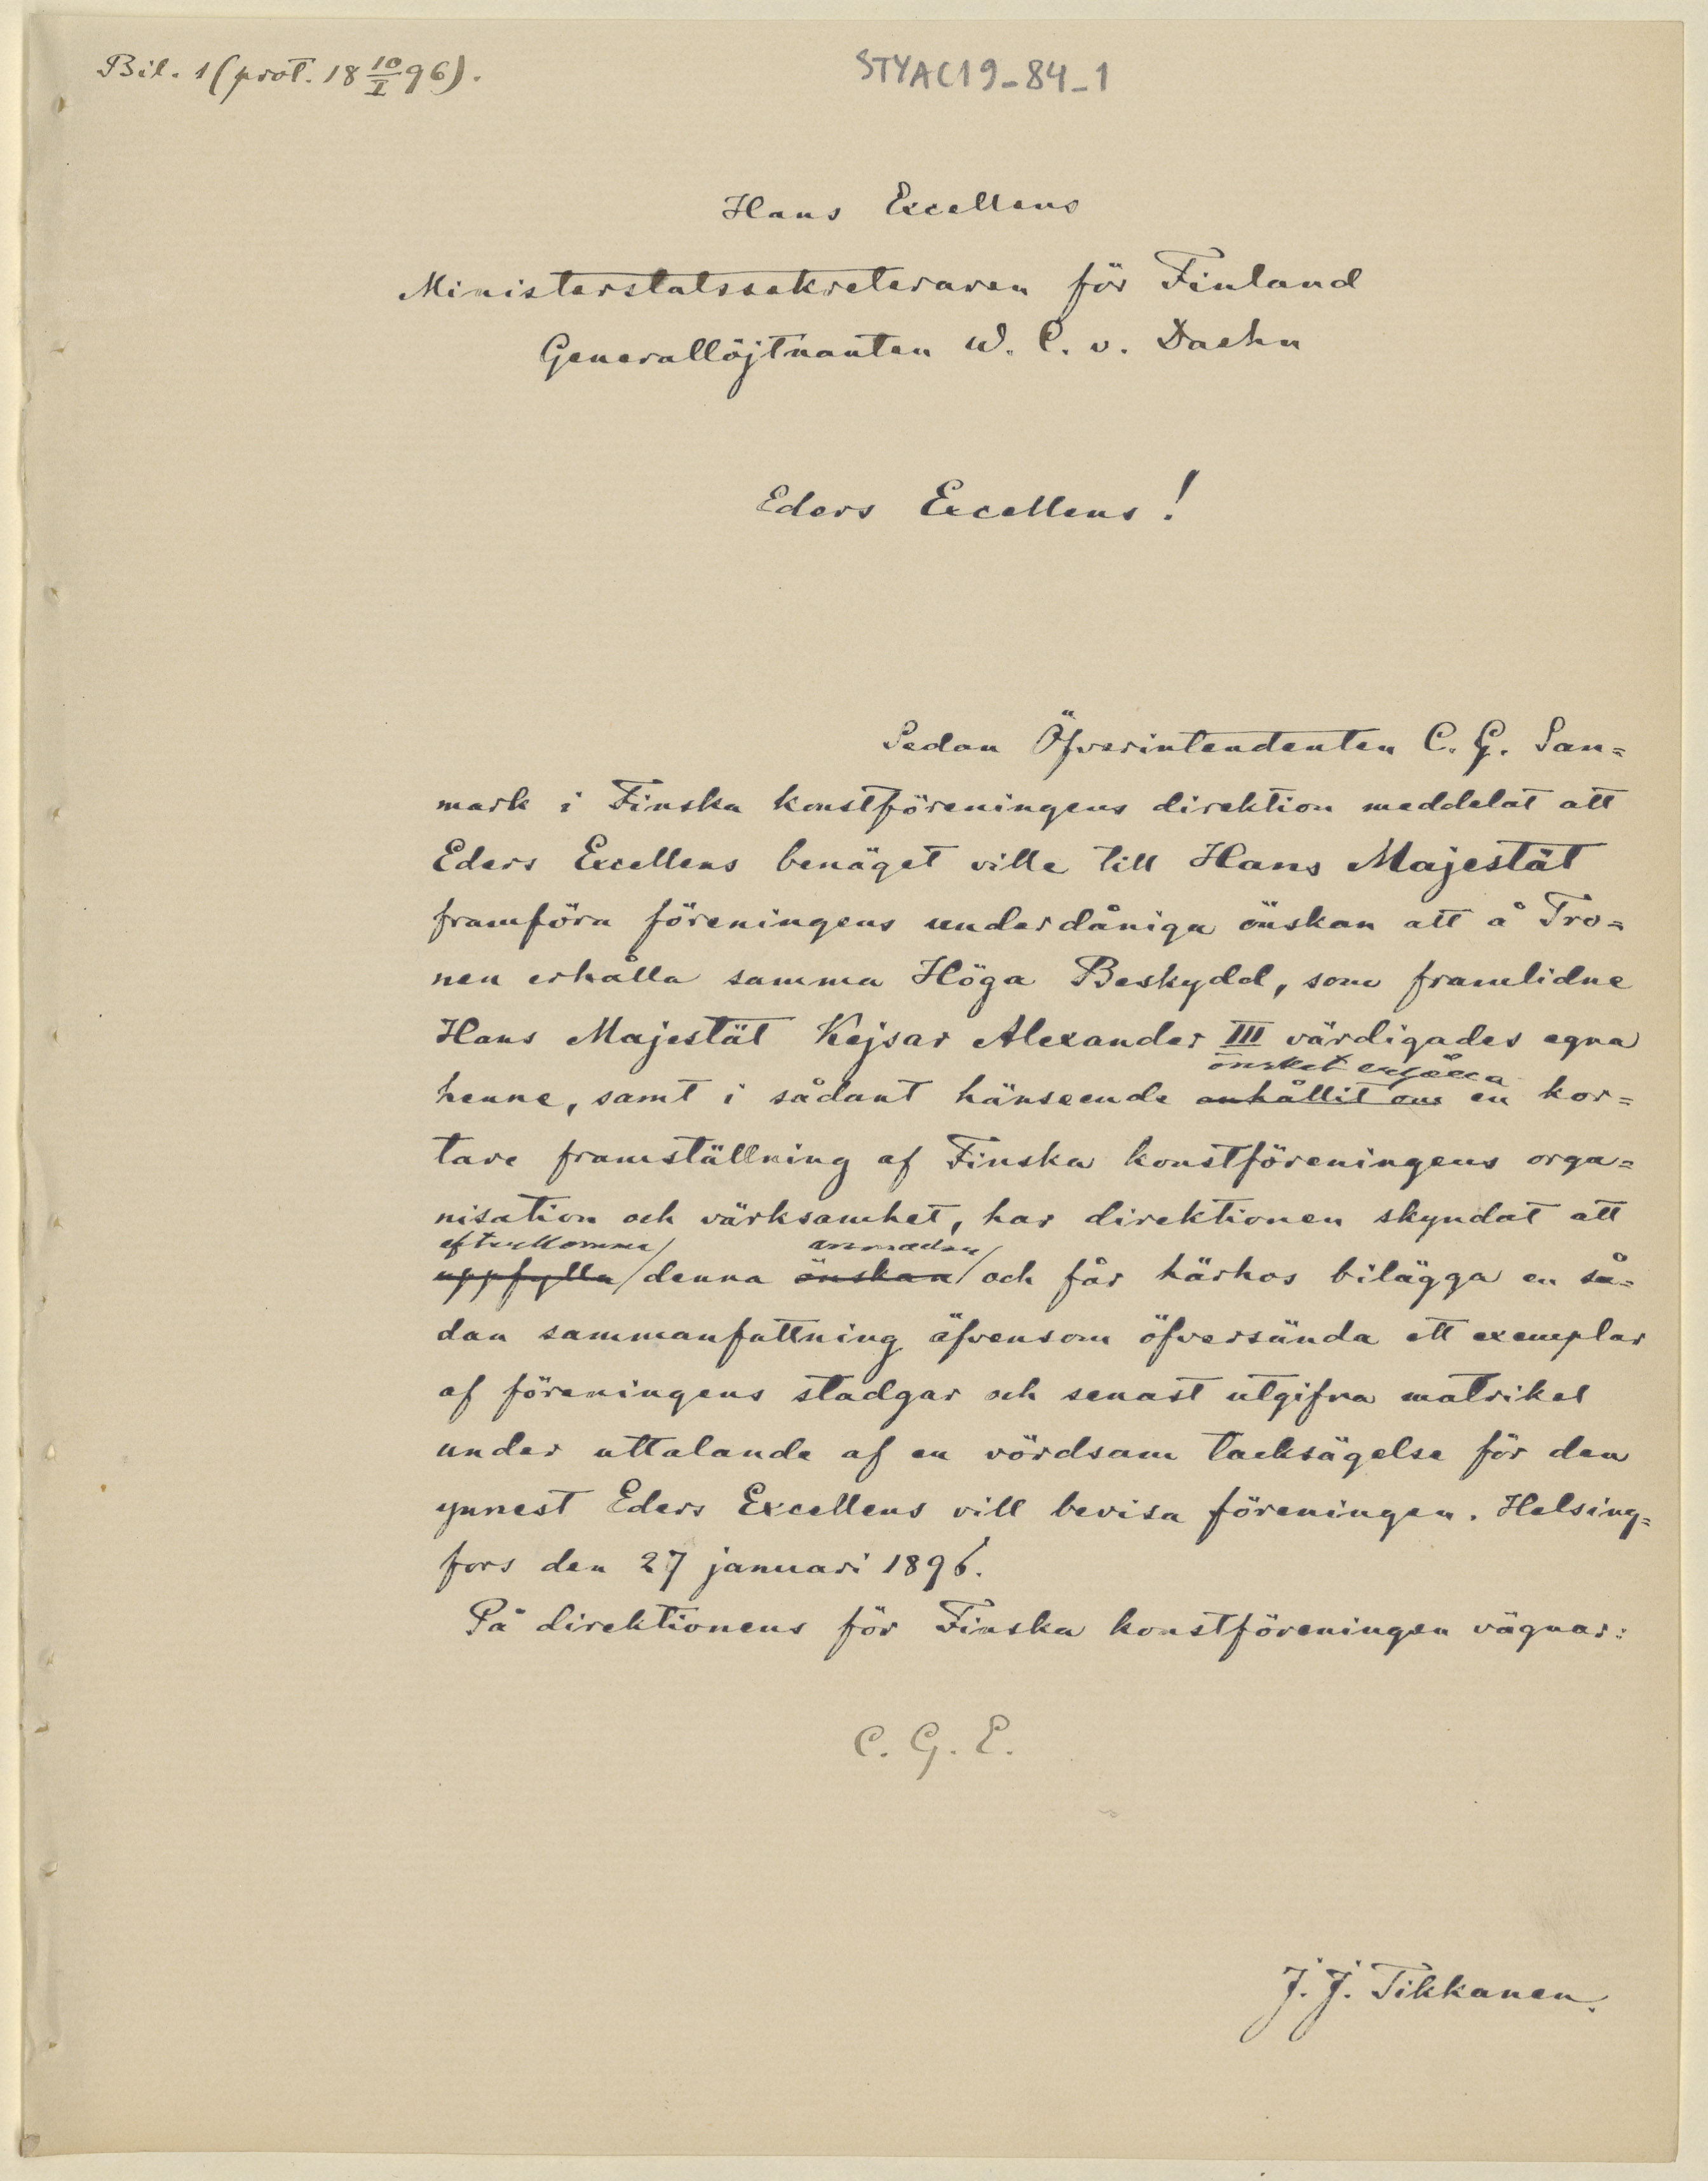 Bil. 1 (prot. 18 10/I 96).
STYAC19-84-1
Hans Excellens
Ministerstatssekreteraren för Finland
Generallöjtnanten W. C. v. Daehn
Eders Excellens!
Sedan Öfverintendenten C. G. San=
mark i Finska konstföreningens direktion meddelat att
Eders Excellens benäget ville till Hans Majestät
framföra föreningens underdåniga önskan att å Tro=
nen erhålla samma Höga Beskydd, som framlidne
Hans Majestät Kejsar Alexander III värdigades egna
önskat erhålla
henne, samt i sådant hänseende anhållit om en kor=
tare framställning af Finska konstföreningens orga=
nisation och värksamhet, har direktionen skyndat att
efterkomma/ anmodan/
uppfylla/denna önskan/och får härhos bilägga en så=
dan sammanfattning äfvensom öfversända ett exemplar
af föreningens stadgar och senast utgifna matrikel
under uttalande af en vördsam tacksägelse för den
ynnest Eders Excellens vill bevisa föreningen. Helsing=
fors den 27 januari 1896.
På direktionens för Finska konstföreningen vägnar:
C. G. E.
J. J. Tikkanen.